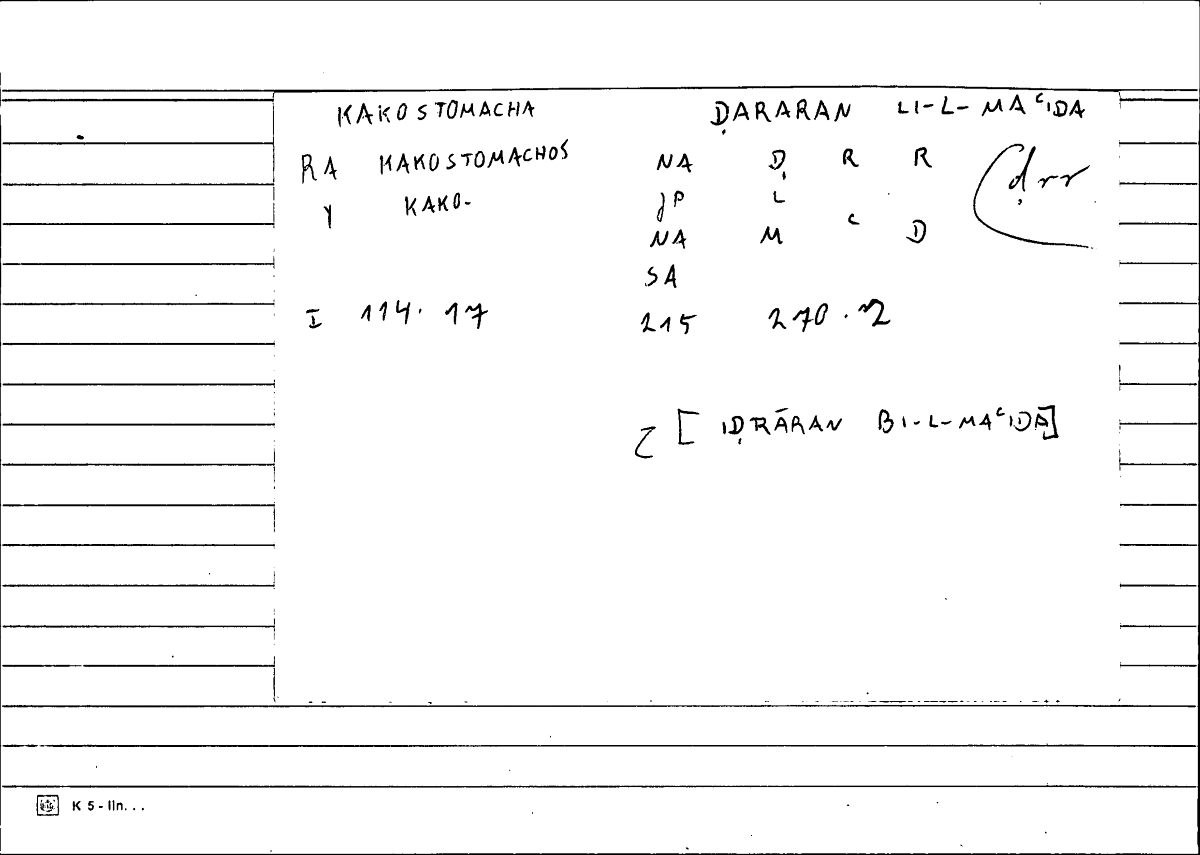 KAKOSTOMACHA ḌARARAN LI-L-MAʿIDA
RA KAKOSTOMACHOS NA Ḍ R R ḍrr
Y KAKO- JP L
NA M ʿ D
SA
I 114.17 215 270.12
[IḌRĀRAN BI-L-MAʿIDA]
K 5 - lln. . .